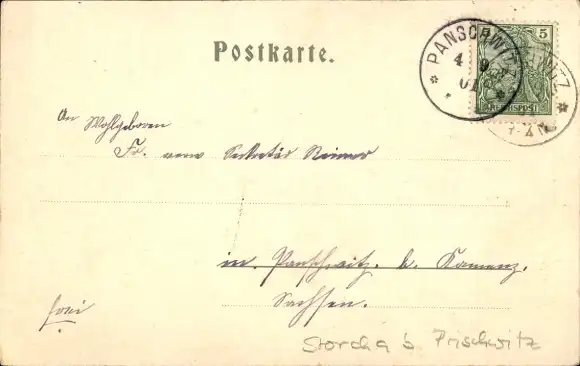 Postkarte.
PANSCHWITZ
4 9
01
5
REICHSPOST
An
Wohlgeboren
Fr. verw Sekretär Reimer
in. Panschwitz. b. Kamenz.
Sachsen.
frei
Storcha b. Prischwitz